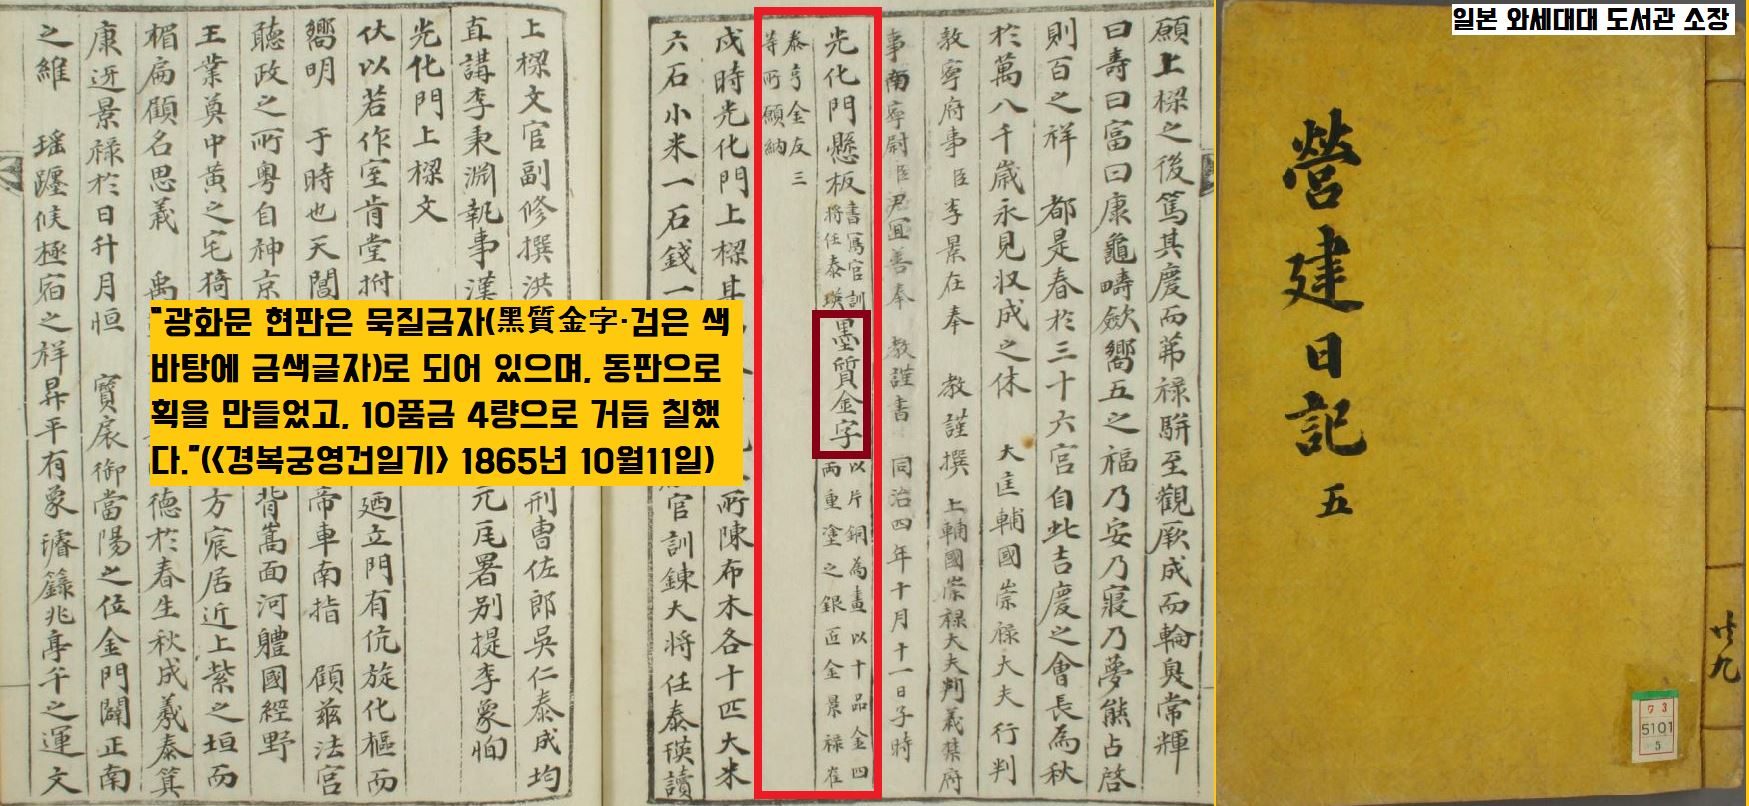 일본 와세대대 도서관 소장
營建日記 五
廿九
ワ 3
5101
5
願上樑之後篤其慶而茀禄騈至觀厥成而輪奐常輝
曰壽曰富曰康龜疇斂嚮五之福乃安乃寢乃夢熊占啓
則百之祥 都是春於三十六宮自此吉慶之會長為秋
於萬八千歲永見収成之休 大匡輔國崇禄大夫行判
敦寧府事臣李景在奉 敎謹撰 上輔國崇禄大夫判義禁府
事南寧尉臣尹宜善奉 敎謹書 同治四年十月十一日子時
光化門懸板 書寫官訓 將任泰瑛 墨質金字 以片銅為畫以十品金四 兩重塗之銀匠金景禄崔
泰亨金友三
等所願納
戍時光化門上樑其 所陳布木各十匹大米
六石小米一石錢一 官訓鍊大將任泰瑛讀
上樑文官副修撰洪 刑曹佐郎吳仁泰成均
直講李秉淵執事漢 元瓦署別提李象怕
光化門上樑文
伏以若作室肯堂 廼立門有伉旋化樞而
嚮明 于時也天闓 帝車南指 顧玆法宮
聽政之所粤自神京 背嵩面河體國經野
王業奠中黄之宅猗 方宸居近上紫之垣而
楣扁顧名思義 禹 德於春生秋成羲泰箕
康迓景禄於日升月恒 寶扆御當陽之位金門闢正南
之維 瑤躔候極宿之祥昇平有象濬籙兆亭千之運文
"광화문 현판은 묵질금자(黑質金字·검은 색
바탕에 금색글자)로 되어 있으며, 동판으로
획을 만들었고, 10품금 4량으로 거듭 칠했
다."(<경복궁영건일기> 1865년 10월11일)